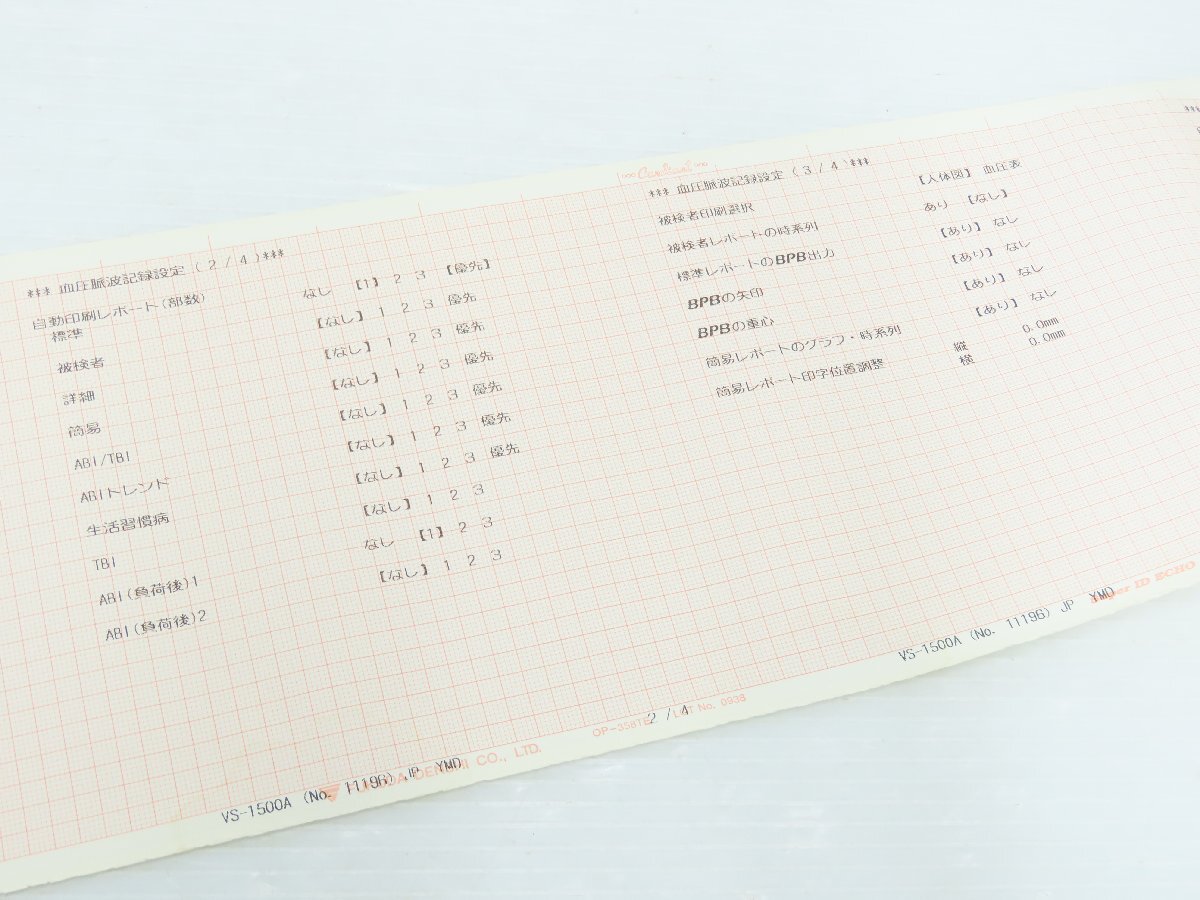 *** 血圧脈波記録設定 ( 2 / 4 )***
自動印刷レポート(部数)
標準 なし 【1】 2 3 【優先】
被検者 【なし】 1 2 3 優先
詳細 【なし】 1 2 3 優先
簡易 【なし】 1 2 3 優先
ABI/TBI 【なし】 1 2 3 優先
ABIトレンド 【なし】 1 2 3 優先
生活習慣病 【なし】 1 2 3 優先
TBI 【なし】 1 2 3
ABI(負荷後)1 なし 【1】 2 3
ABI(負荷後)2 【なし】 1 2 3
VS-1500A (No. 11196) JP YMD
DENSHI CO., LTD.
OP-358TE LOT No. 0938
2 / 4
*** 血圧脈波記録設定 ( 3 / 4 )***
被検者印刷選択 【人体図】 血圧表
被検者レポートの時系列 あり 【なし】
標準レポートのBPB出力 【あり】 なし
BPBの矢印 【あり】 なし
BPBの重心 【あり】 なし
簡易レポートのグラフ・時系列 【あり】 なし
簡易レポート印字位置調整 縦 0.0mm
横 0.0mm
VS-1500A (No. 11196) JP YMD
ID ECHO
***